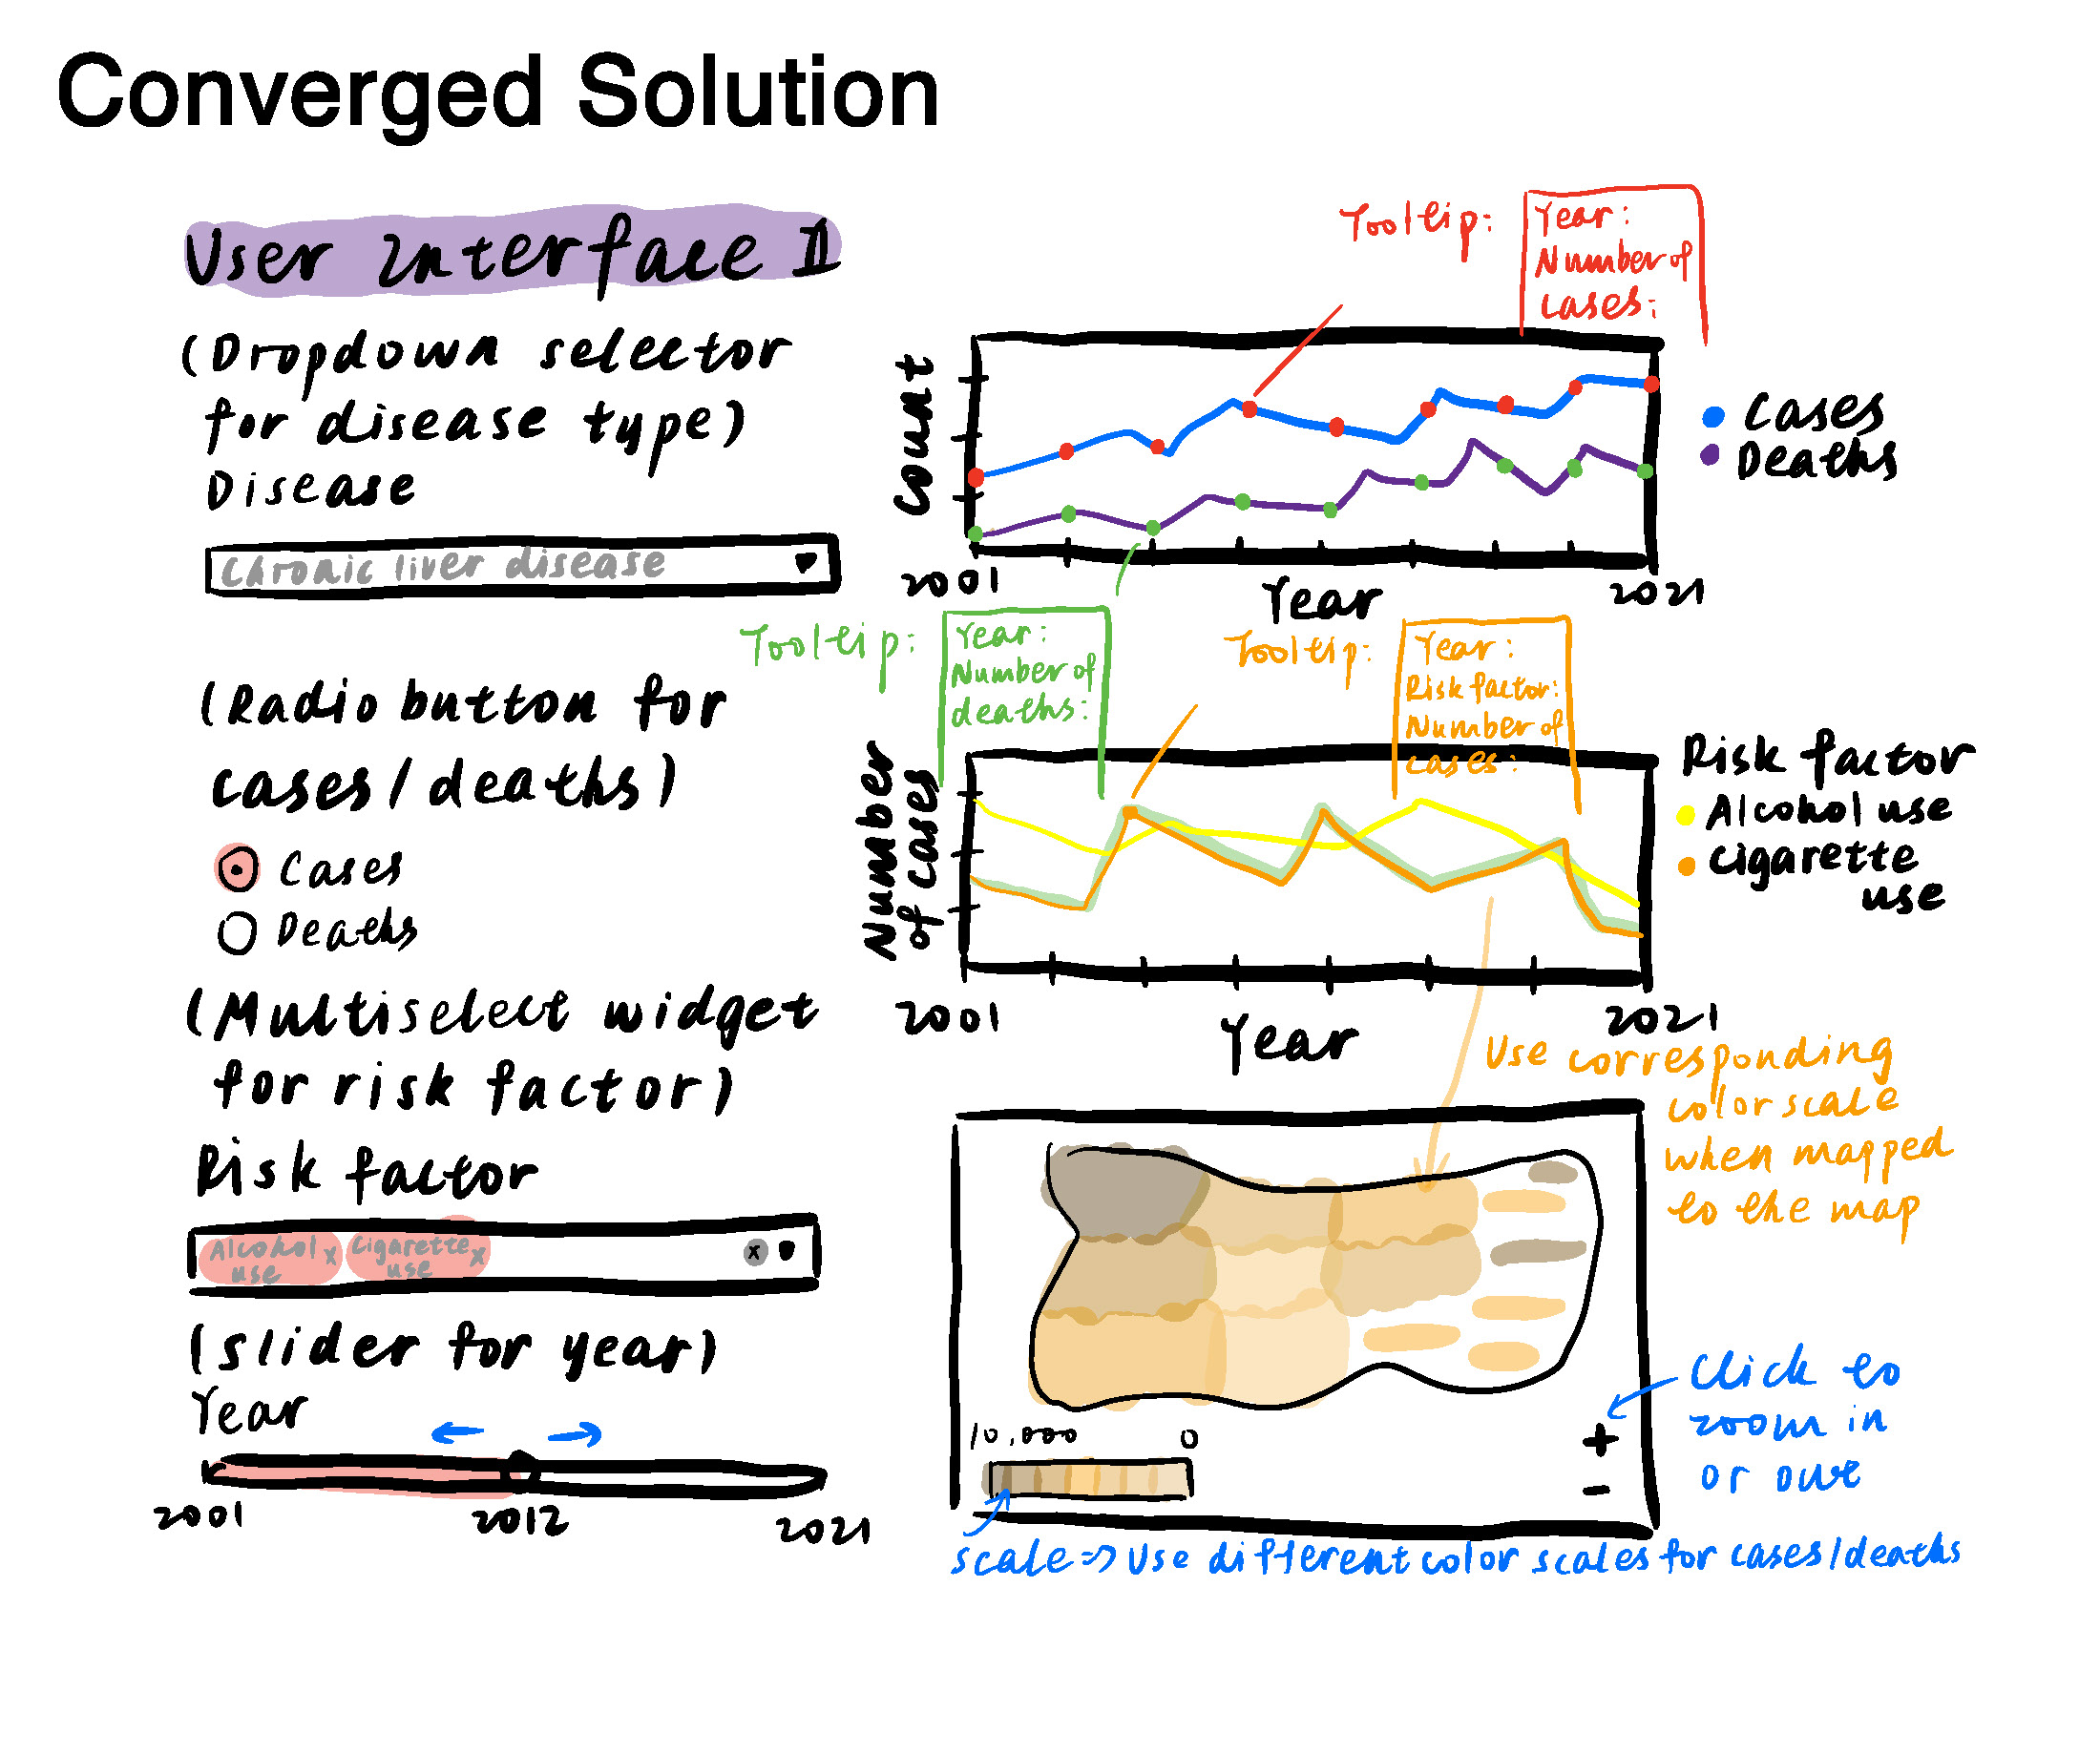 Converged Solution
User Interface II
(Dropdown selector
for disease type)
Disease
Chronic liver disease
(Radio button for
cases/deaths)
Cases
Deaths
(Multiselect widget
for risk factor)
Risk factor
Alcohol x
use
Cigarette x
use
x
(slider for year)
Year
2001
2012
2021
Tooltip:
Year:
Number of
cases:
Count
Cases
Deaths
2001
Year
2021
Tooltip:
Year:
Number of
deaths:
Tooltip:
Year:
Risk factor:
Number of
cases:
Number
of cases
Risk factor
Alcohol use
Cigarette
use
2001
Year
2021
Use corresponding
color scale
when mapped
to the map
10,000
0
+
-
Click to
zoom in
or out
scale => Use different color scales for cases/deaths